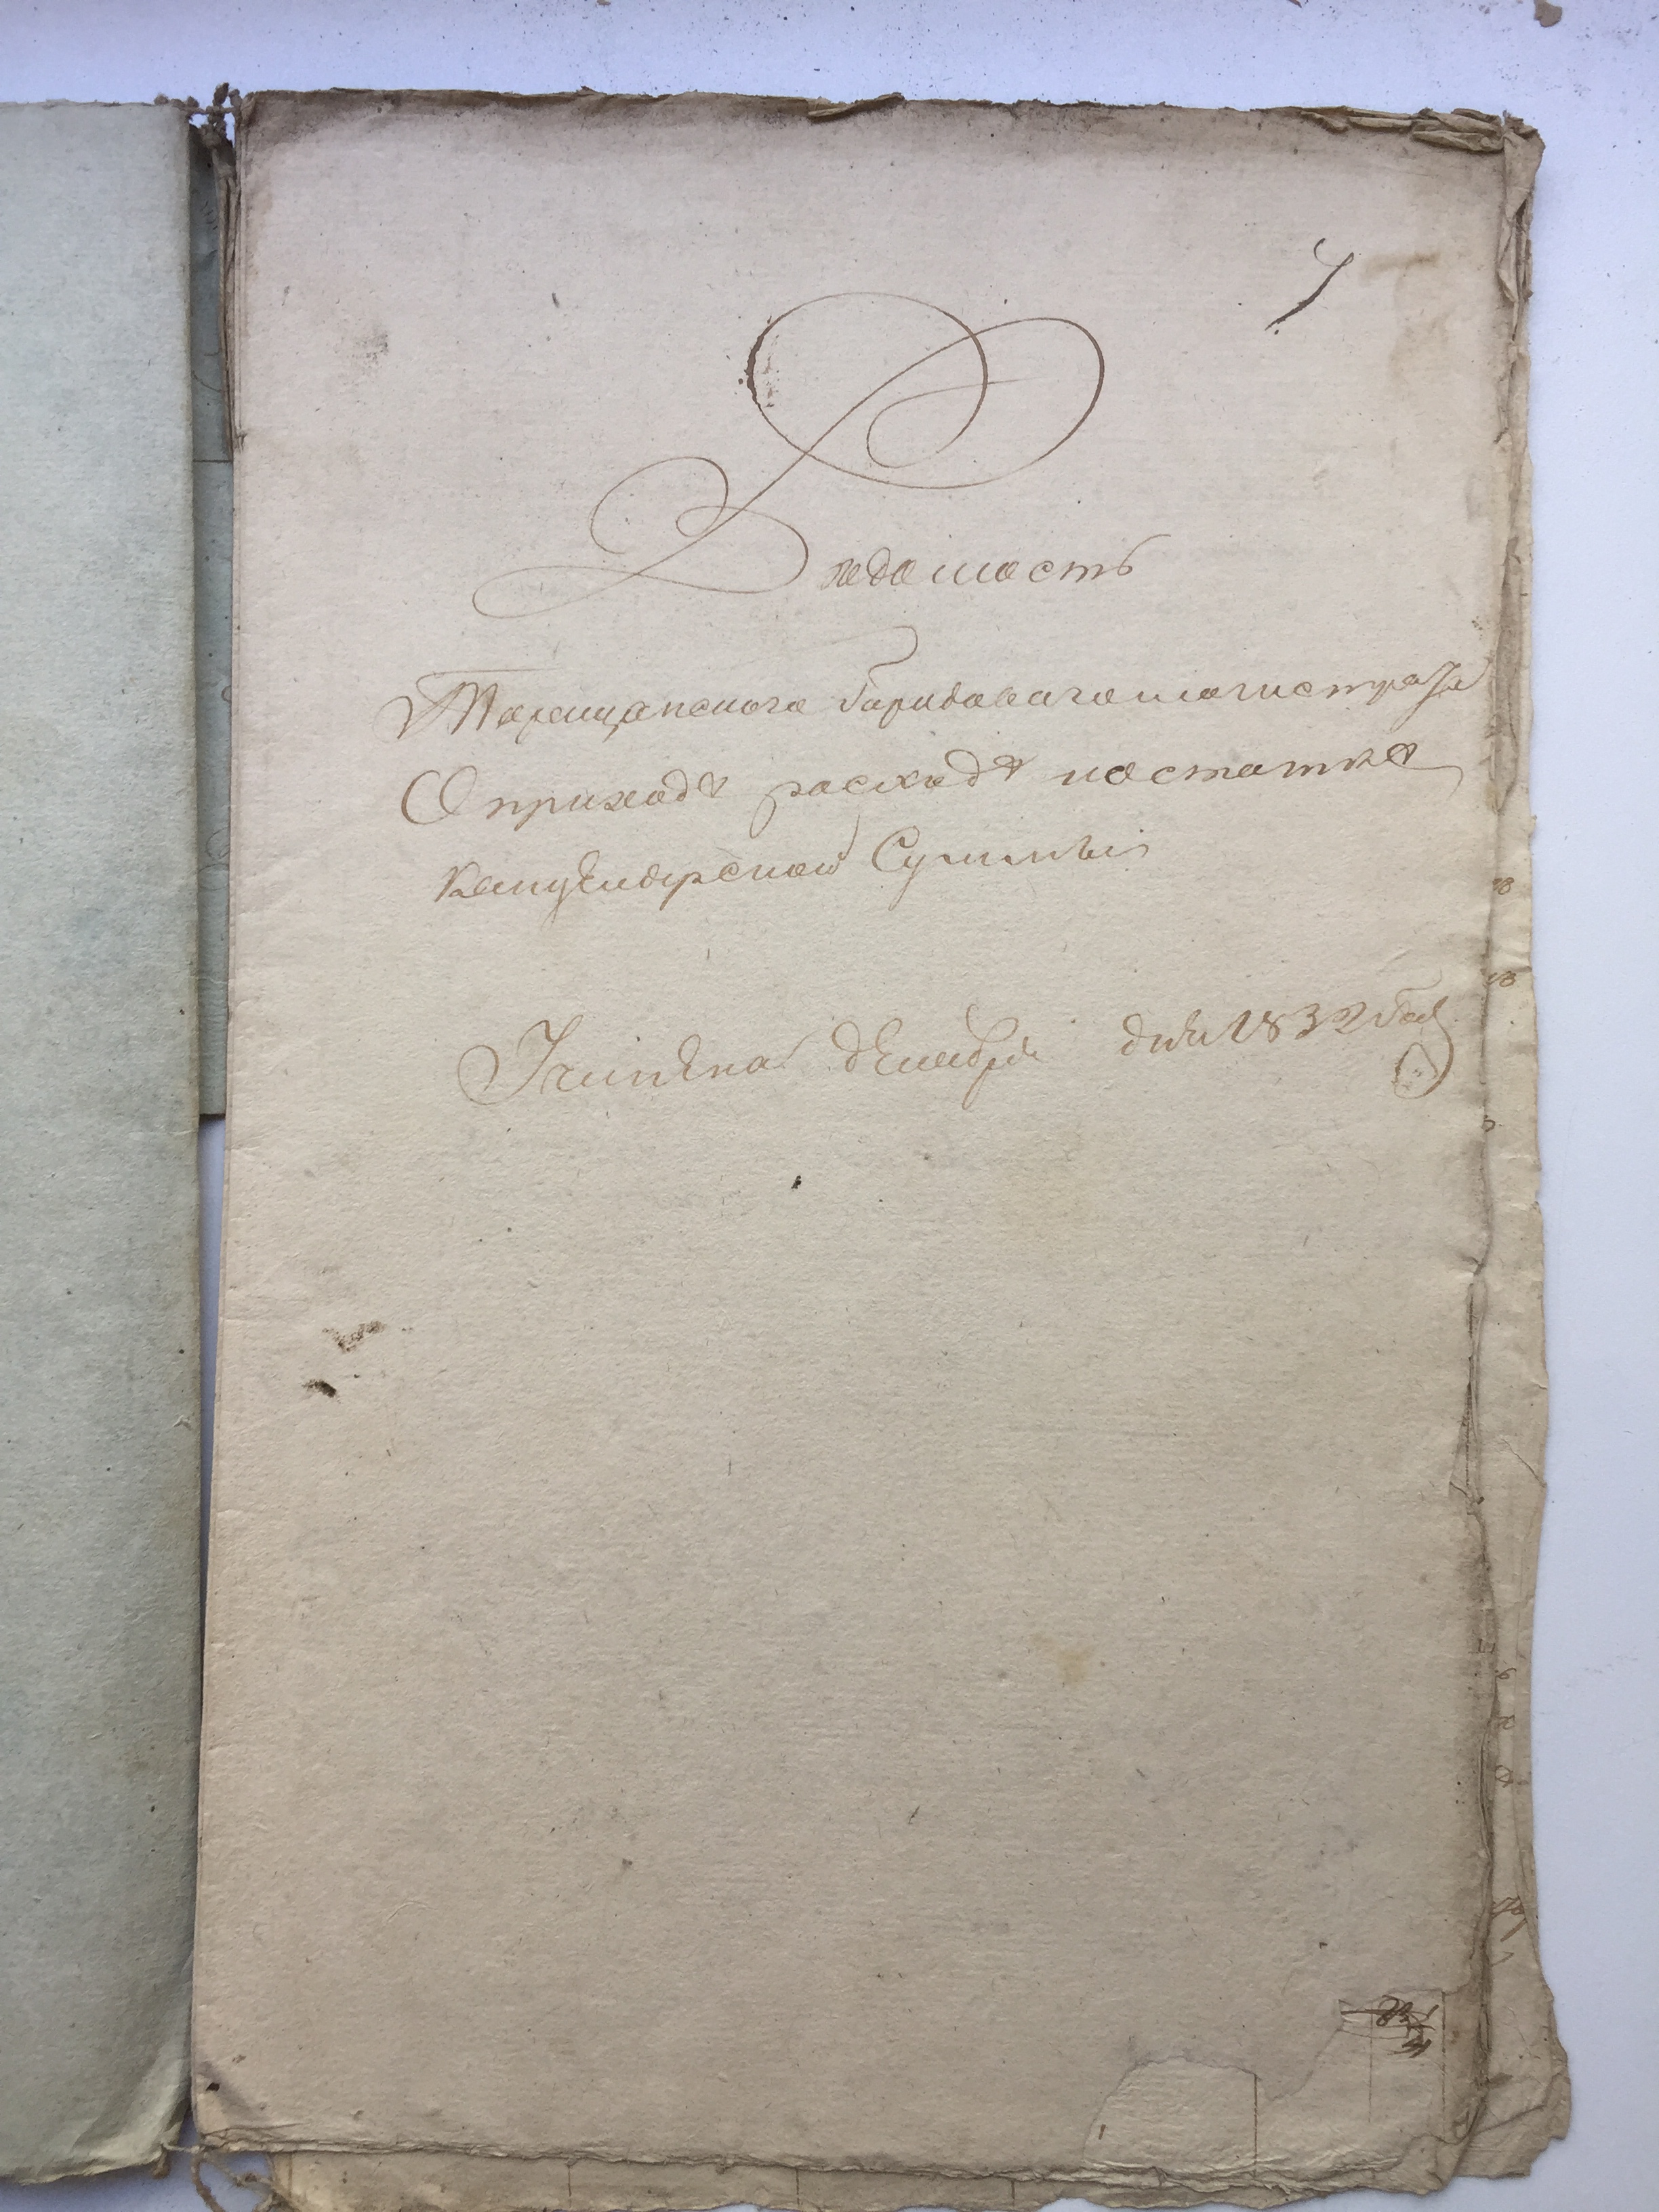 Ведомость
Таращанского Городоваго магистрата
О приходе расходе и остатке
канцелярской Суммы
Учинена декабря дня 1832 года